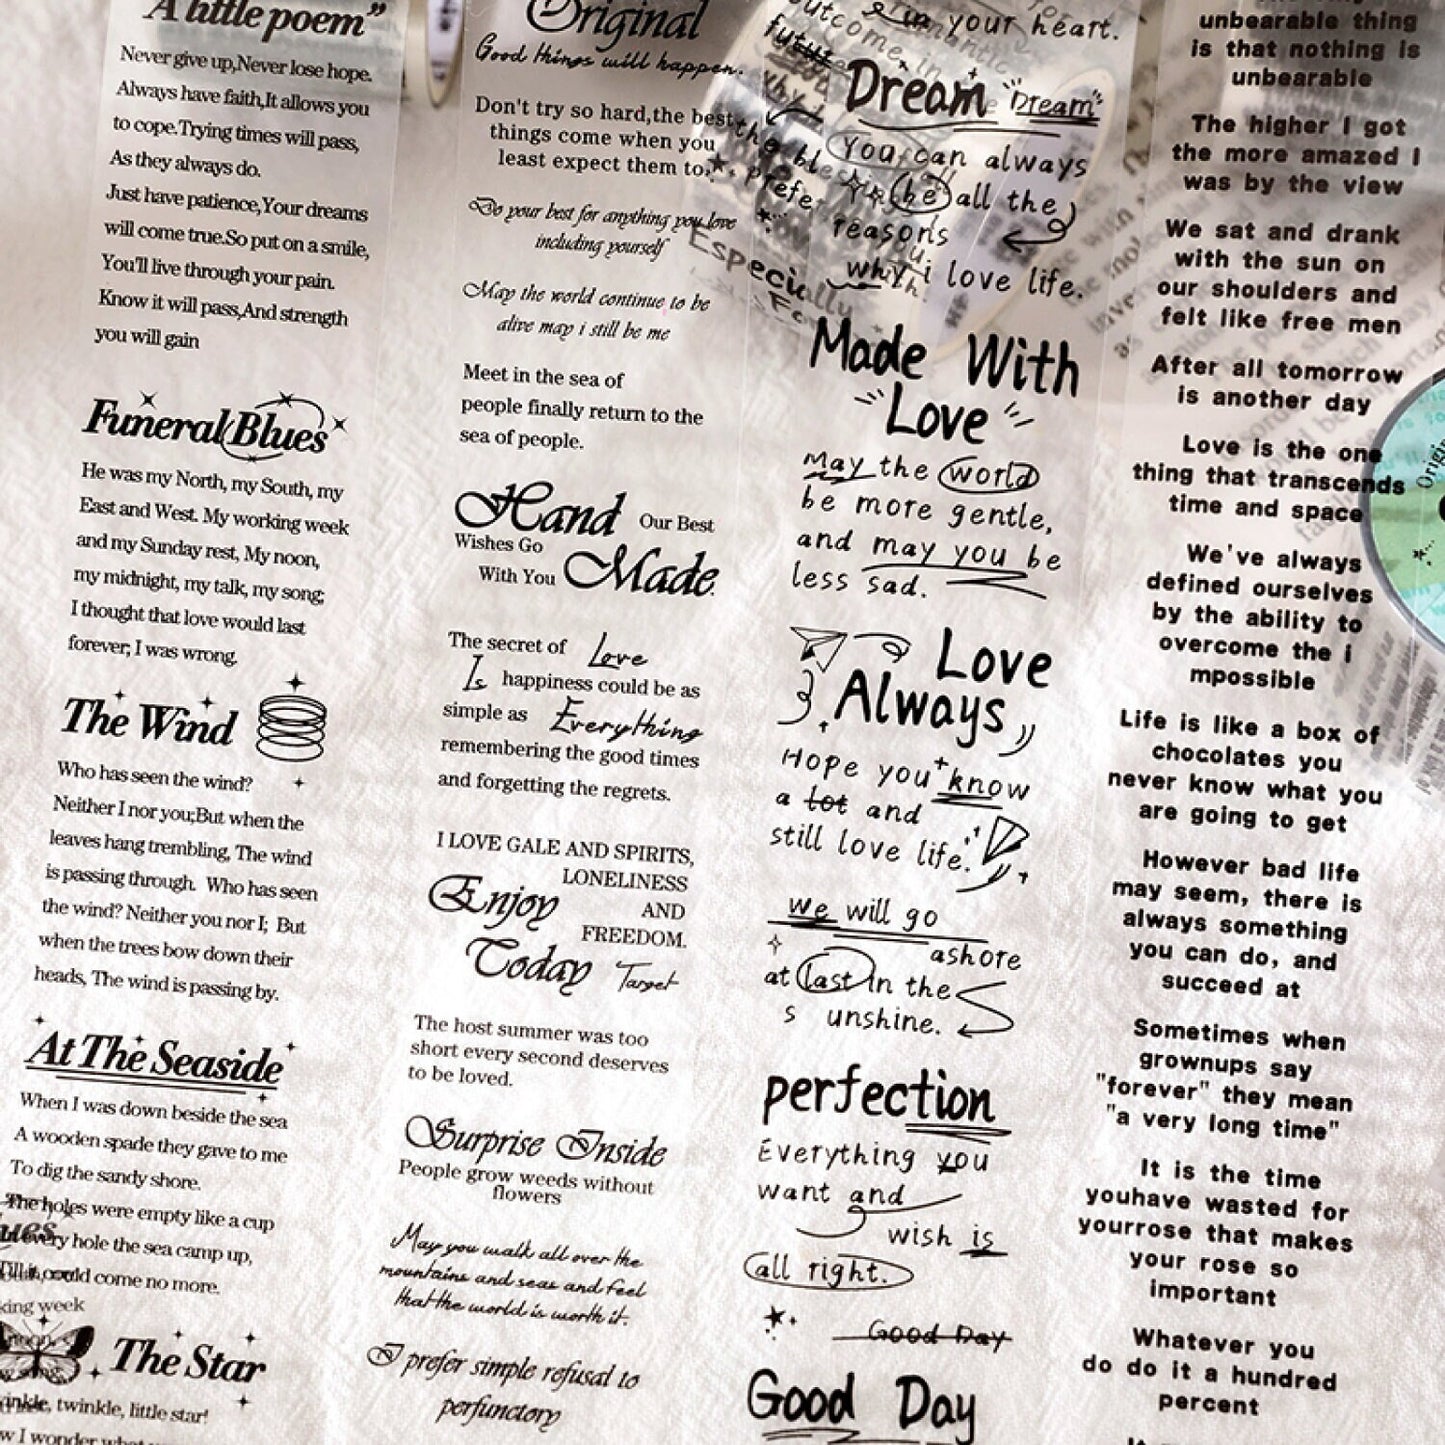 A little poem"
Never give up,Never lose hope.
Always have faith,It allows you
to cope.Trying times will pass,
As they always do.
Just have patience,Your dreams
will come true.So put on a smile,
You'll live through your pain.
Know it will pass,And strength
you will gain
Funeral Blues
He was my North, my South, my
East and West. My working week
and my Sunday rest, My noon,
my midnight, my talk, my song;
I thought that love would last
forever; I was wrong.
The Wind
Who has seen the wind?
Neither I nor you;But when the
leaves hang trembling, The wind
is passing through. Who has seen
the wind? Neither you nor I; But
when the trees bow down their
heads, The wind is passing by.
At The Seaside
When I was down beside the sea
A wooden spade they gave to me
To dig the sandy shore.
The holes were empty like a cup
In every hole the sea camp up,
Till it could come no more.
king week
The Star
twinkle, little star!
I wonder
Original
Good things will happen.
Don't try so hard,the best
things come when you
least expect them to.
Do your best for anything you love
including yourself
May the world continue to be
alive may i still be me
Meet in the sea of
people finally return to the
sea of people.
Hand Our Best
Wishes Go
With You Made.
The secret of Love
Is happiness could be as
simple as Everything
remembering the good times
and forgetting the regrets.
I LOVE GALE AND SPIRITS,
LONELINESS
Enjoy AND
FREEDOM.
Today Target
The host summer was too
short every second deserves
to be loved.
Surprise Inside
People grow weeds without
flowers
May you walk all over the
mountains and seas and feel
that the world is worth it.
I prefer simple refusal to
perfunctory
outcome in your heart.
future
Dream "Dream"
You can always
be all the
reasons
why i love life.
Especially
Made With
Love
May the world
be more gentle,
and may you be
less sad.
Love
Always
Hope you know
a lot and
still love life.
we will go
ashore
at last in the
s unshine.
perfection
Everything you
want and
wish is
all right.
Good Day
Good Day
unbearable thing
is that nothing is
unbearable
The higher I got
the more amazed I
was by the view
We sat and drank
with the sun on
our shoulders and
felt like free men
After all tomorrow
is another day
Love is the one
thing that transcends
time and space
We've always
defined ourselves
by the ability to
overcome the i
mpossible
Life is like a box of
chocolates you
never know what you
are going to get
However bad life
may seem, there is
always something
you can do, and
succeed at
Sometimes when
grownups say
"forever" they mean
"a very long time"
It is the time
youhave wasted for
yourrose that makes
your rose so
important
Whatever you
do do it a hundred
percent